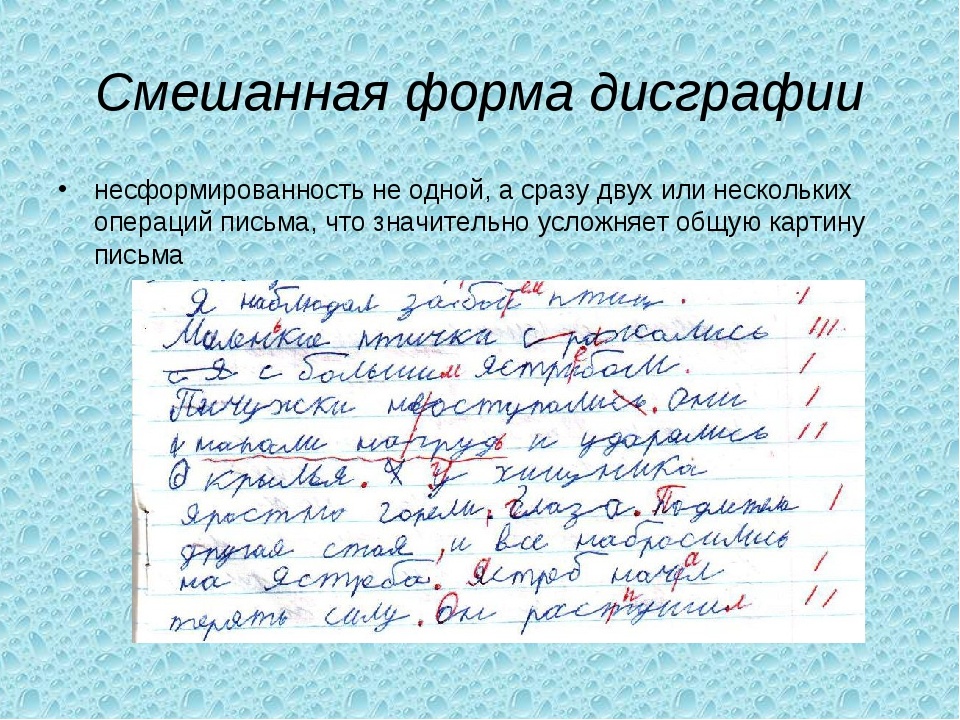 Смешанная форма дисграфии
• несформированность не одной, а сразу двух или нескольких
операций письма, что значительно усложняет общую картину
письма
Я наблюдал за бой птиц.
Маленькие птички с ражались
с я с большим ястребом.
Пичужки не оступались. Они
на грудь и ударялись
О крылья. У хищника
яростно горели глаза. Подлетела
другая стая, и все набросились
на ястреба. Ястреб начал
терять силу. Он распушил